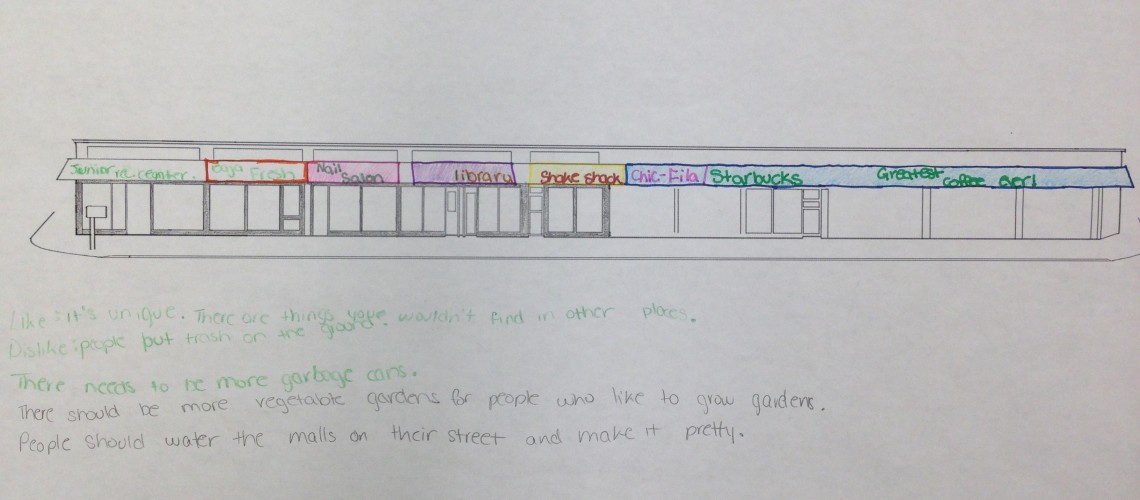 Junior re. center.
Fresh
Nail Salon
library
Shake shack
Chic-Fila
Starbucks
Greatest coffee ever!
Like: it's unique. There are things you wouldn't find in other places.
Dislike: people but trash on the
There needs to be more garbage cans.
There should be more vegetable gardens for people who like to grow gardens.
People should water the malls on their street and make it pretty.